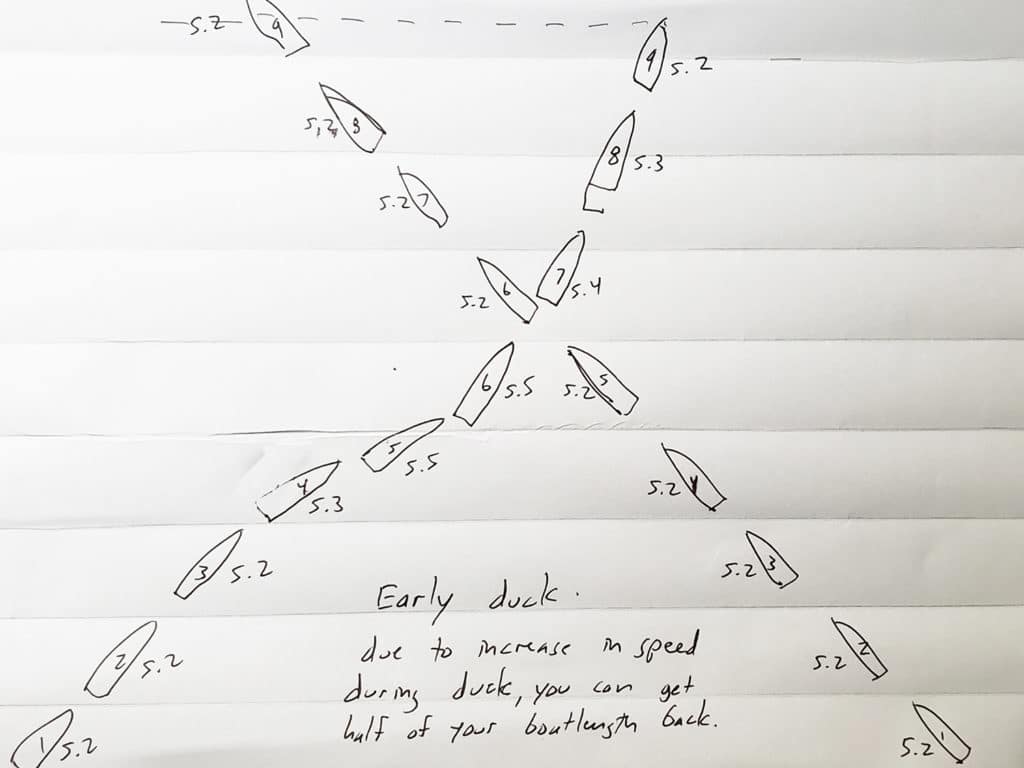 5.2 9
9 5.2
5,2, 8
8 5.3
5.2 7
7 5.4
5.2 6
6 5.5
5.2 5
5 5.5
5.2 4
4 5.3
3 5.2
5.2 3
Early duck.
2 5.2
due to increase in speed
5.2 2
during duck, you can get
half of your boatlength back.
1 5.2
5.2 1